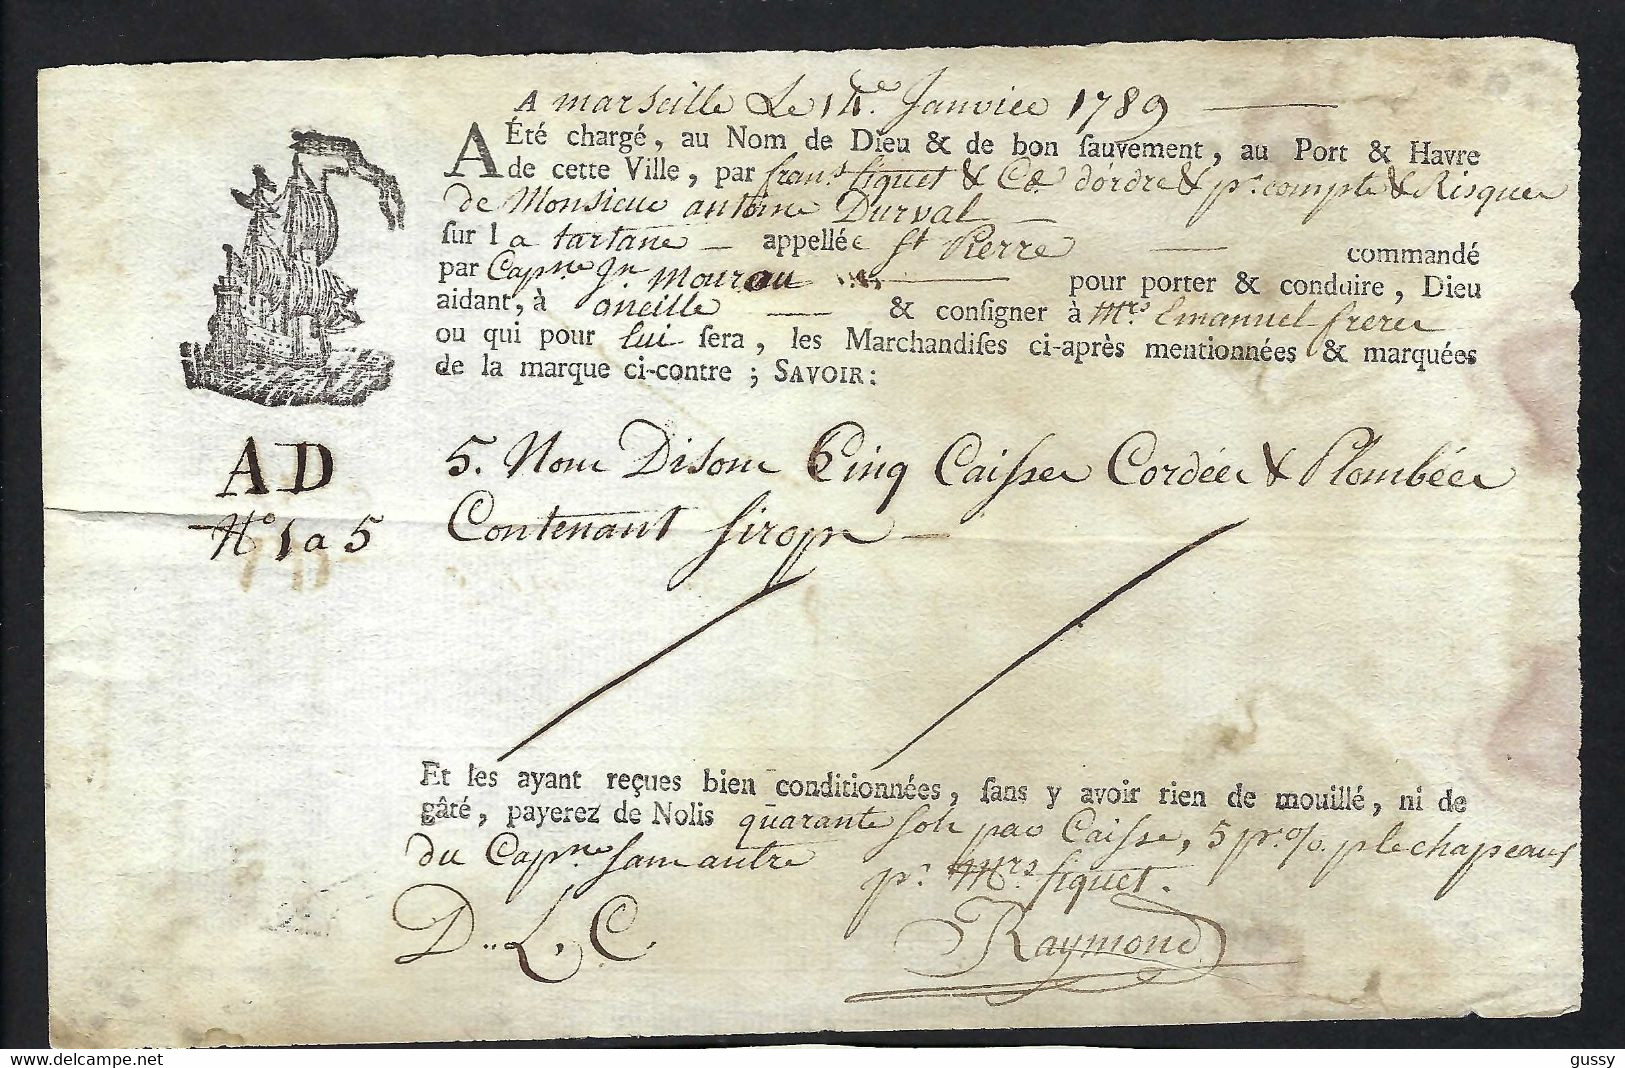 A marseille Le 14e. Janvier 1789
A Été chargé, au Nom de Dieu & de bon ſauvement, au Port & Havre
de cette Ville, par fran.s fiquet & Ce d'ordre & pr. compte & Risques
de Monsieur antoine Durval
ſur la tartane appellée St Pierre commandé
par Capne Jn. Mourau pour porter & conduire, Dieu
aidant, à oneille & conſigner à Mrs Emanuel freres
ou qui pour lui ſera, les Marchandiſes ci-après mentionnées & marquées
de la marque ci-contre ; SAVOIR :
AD
No 1 a 5
5. Nous Disons Cinq Caisses Cordées & Plombées
Contenant Sirops
Et les ayant reçues bien conditionnées, ſans y avoir rien de mouillé, ni de
gâté, payerez de Nolis quarante sols par Caisse, 5 pr. % p le chapeaux
du Capne sans autre
pr. Mrs. fiquet.
D.. L. C.
Raymond
delcampe.net
gussy